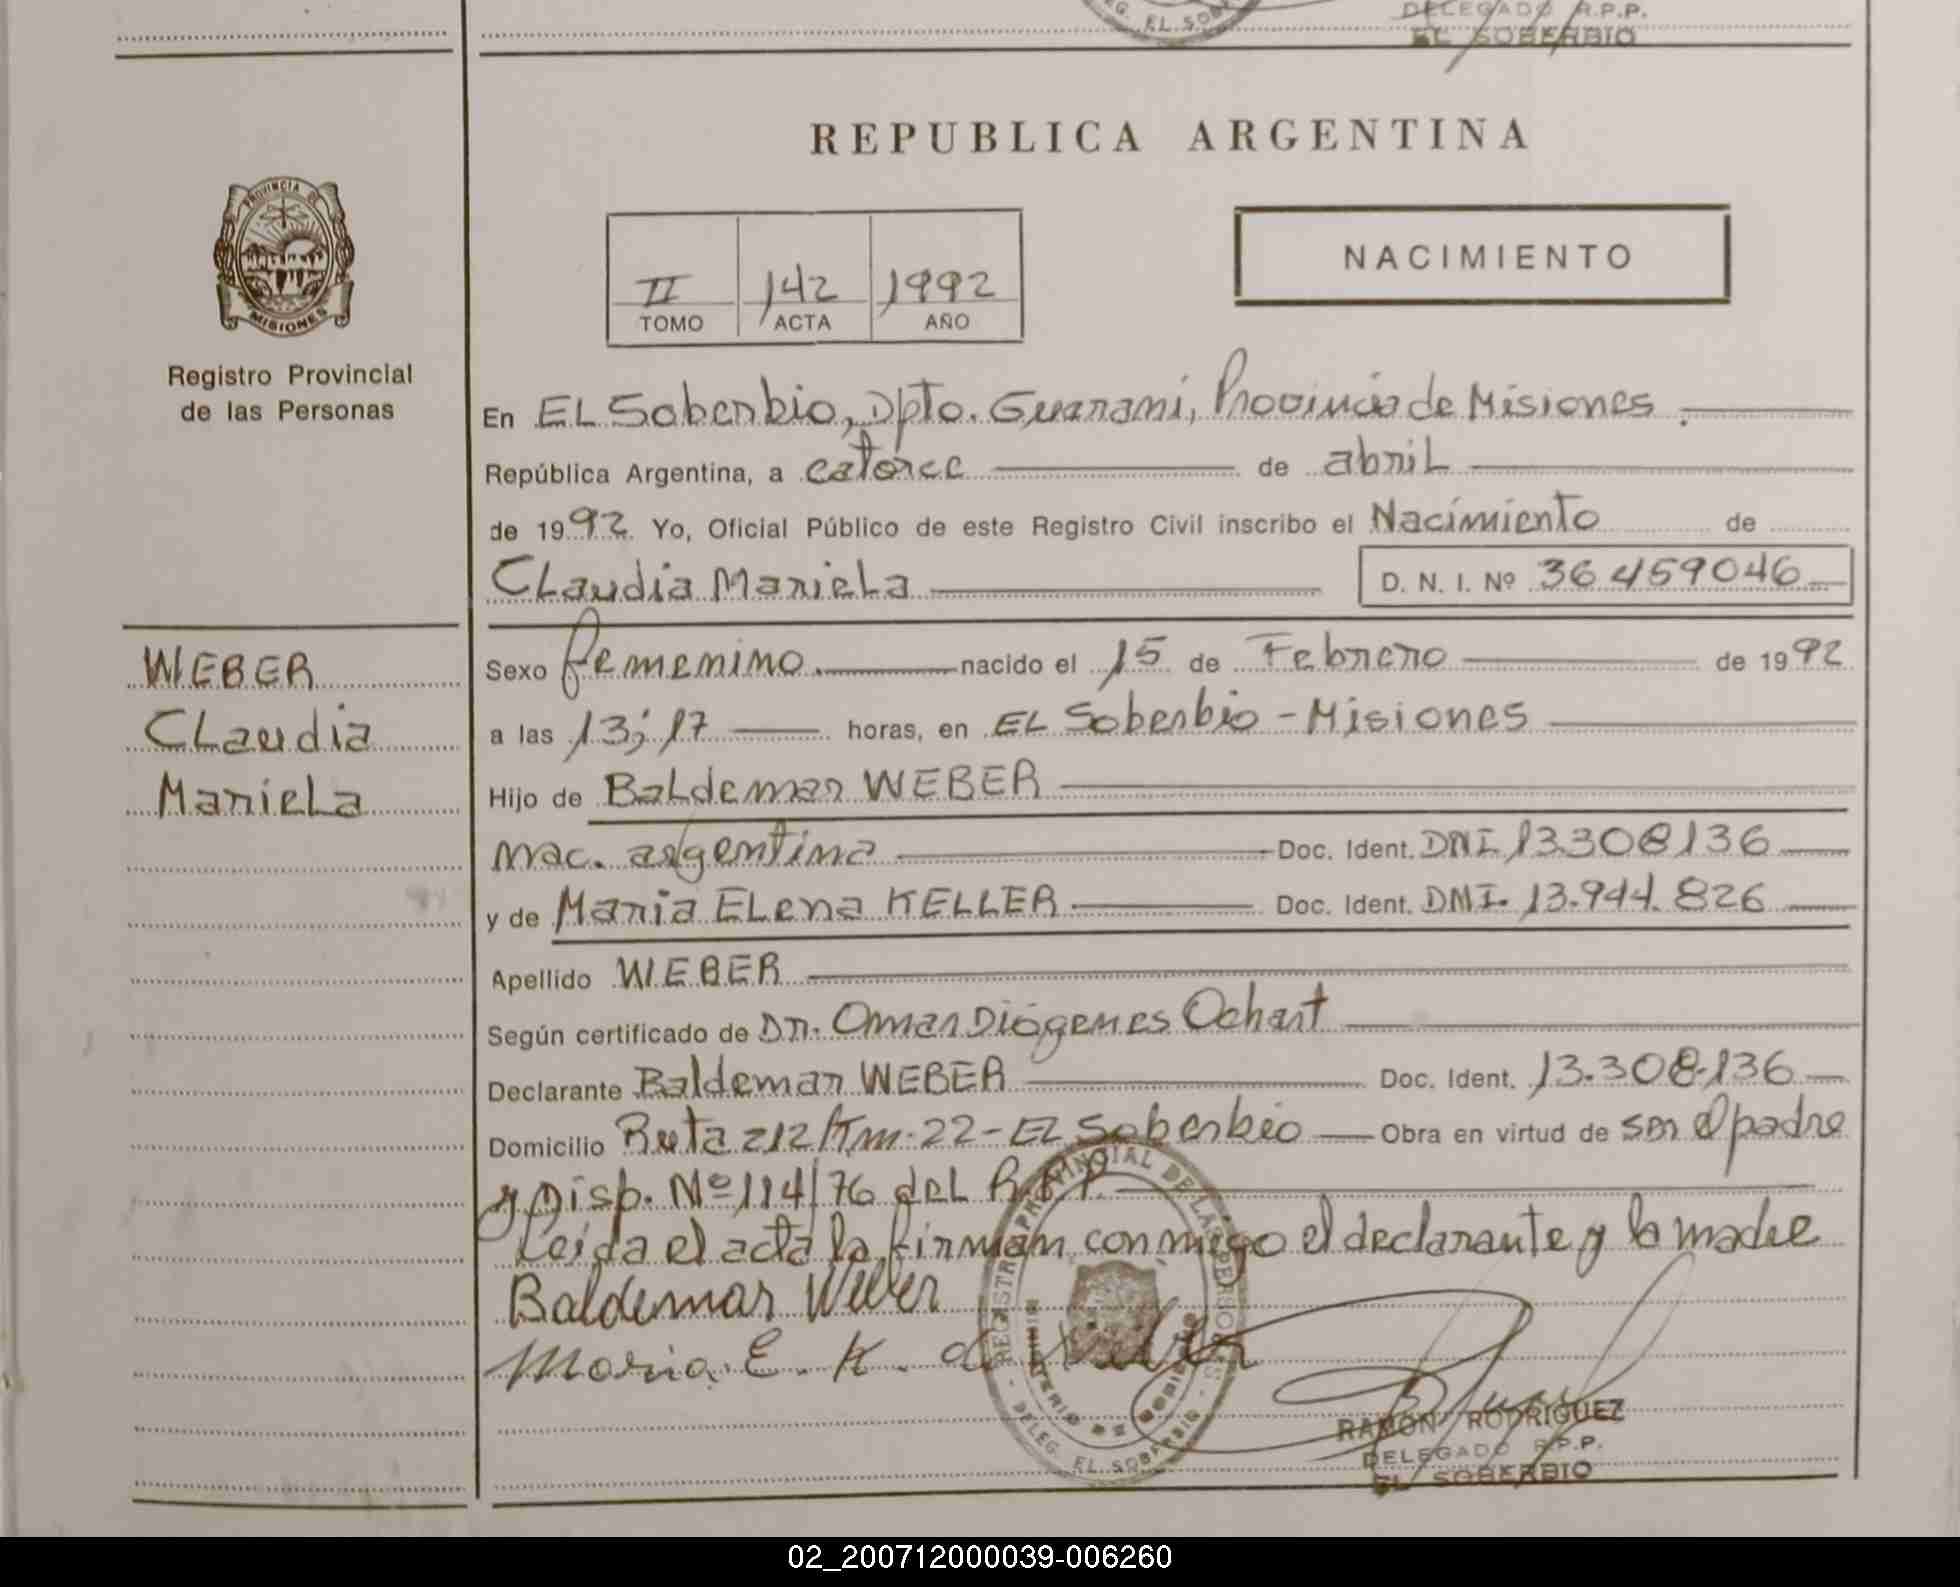 DELEGADO R.P.P.
EL SOBERBIO
REPUBLICA ARGENTINA
PROVINCIA DE
MISIONES
Registro Provincial
de las Personas
II 142 1992
TOMO ACTA AÑO
NACIMIENTO
En EL Soberbio, Dpto. Guarani, Provincia de Misiones.
República Argentina, a catorce de abril
de 1992 Yo, Oficial Público de este Registro Civil inscribo el Nacimiento de
Claudia Mariela D. N. I. Nº 36.459046
WEBER
Claudia
Mariela
Sexo femenino. nacido el 15 de Febrero de 1992
a las 13;17 horas, en EL Soberbio - Misiones
Hijo de Baldemar WEBER
nac. argentina Doc. Ident. DNI 13308136
y de Maria Elena KELLER Doc. Ident. DNI. 13.944.826
Apellido WEBER
Según certificado de Dr. Omar Diógenes Ochart
Declarante Baldemar WEBER Doc. Ident. 13.308.136
Domicilio Ruta 212 Km. 22 - El Soberbio Obra en virtud de ser el padre
y Disp. Nº 114/76 del R.P.P.
Leida el acta la firman conmigo el declarante y la madre
Baldemar Weber
Maria E. K. de Weber
REGISTRO PROVINCIAL DE LAS PERSONAS
MINISTERIO GOBIERNO
DELEG. EL SOBERBIO
RAMON RODRIGUEZ
DELEGADO R.P.P.
EL SOBERBIO
02_200712000039-006260